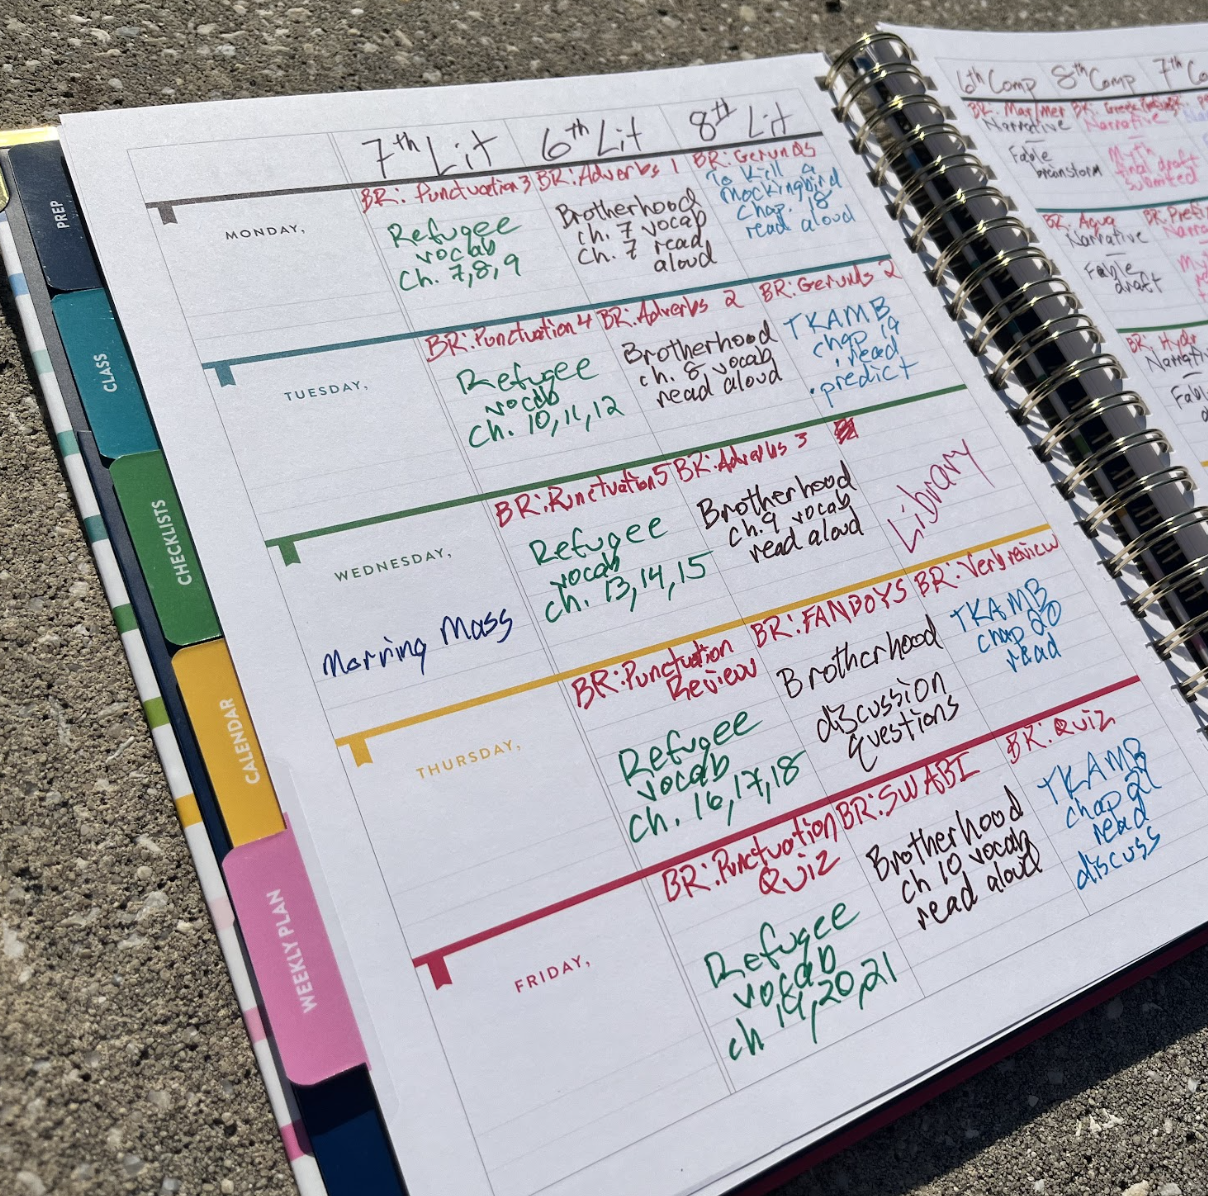 7th Lit
6th Lit
8th Lit
6th Comp
8th Comp
7th
PREP
CLASS
CHECKLISTS
CALENDAR
WEEKLY PLAN
MONDAY,
BR: Punctuation 3
Refugee
vocab
Ch. 7,8,9
BR: Adverbs 1
Brotherhood
ch. 7 vocab
ch. 7 read
aloud
BR: Gerunds
To Kill a
Mockingbird
Chap. 18
read aloud
BR: Mar/Mer
Narrative
Fable
brainstorm
BR: Greek
Narrative
Myth
final draft
submitted
TUESDAY,
BR: Punctuation 4
Refugee
vocab
Ch. 10,11,12
BR: Adverbs 2
Brotherhood
ch. 8 vocab
read aloud
BR: Gerunds 2
TKAMB
chap 19
. read
. predict
BR: Aqua
Narrative
Fable
draft
WEDNESDAY,
Morning Mass
BR: Punctuation 5
Refugee
vocab
ch. 13,14,15
BR: Adverbs 3
Brotherhood
ch. 9 vocab
read aloud
Library
BR: Hydr
THURSDAY,
BR: Punctuation
Review
Refugee
vocab
ch. 16,17,18
BR: FANBOYS
Brotherhood
discussion
questions
BR: Verb review
TKAMB
chap 20
read
FRIDAY,
BR: Punctuation
Quiz
Refugee
vocab
ch 19,20,21
BR: SWABI
Brotherhood
ch 10 vocab
read aloud
BR: Quiz
TKAMB
chap 21
read
discuss